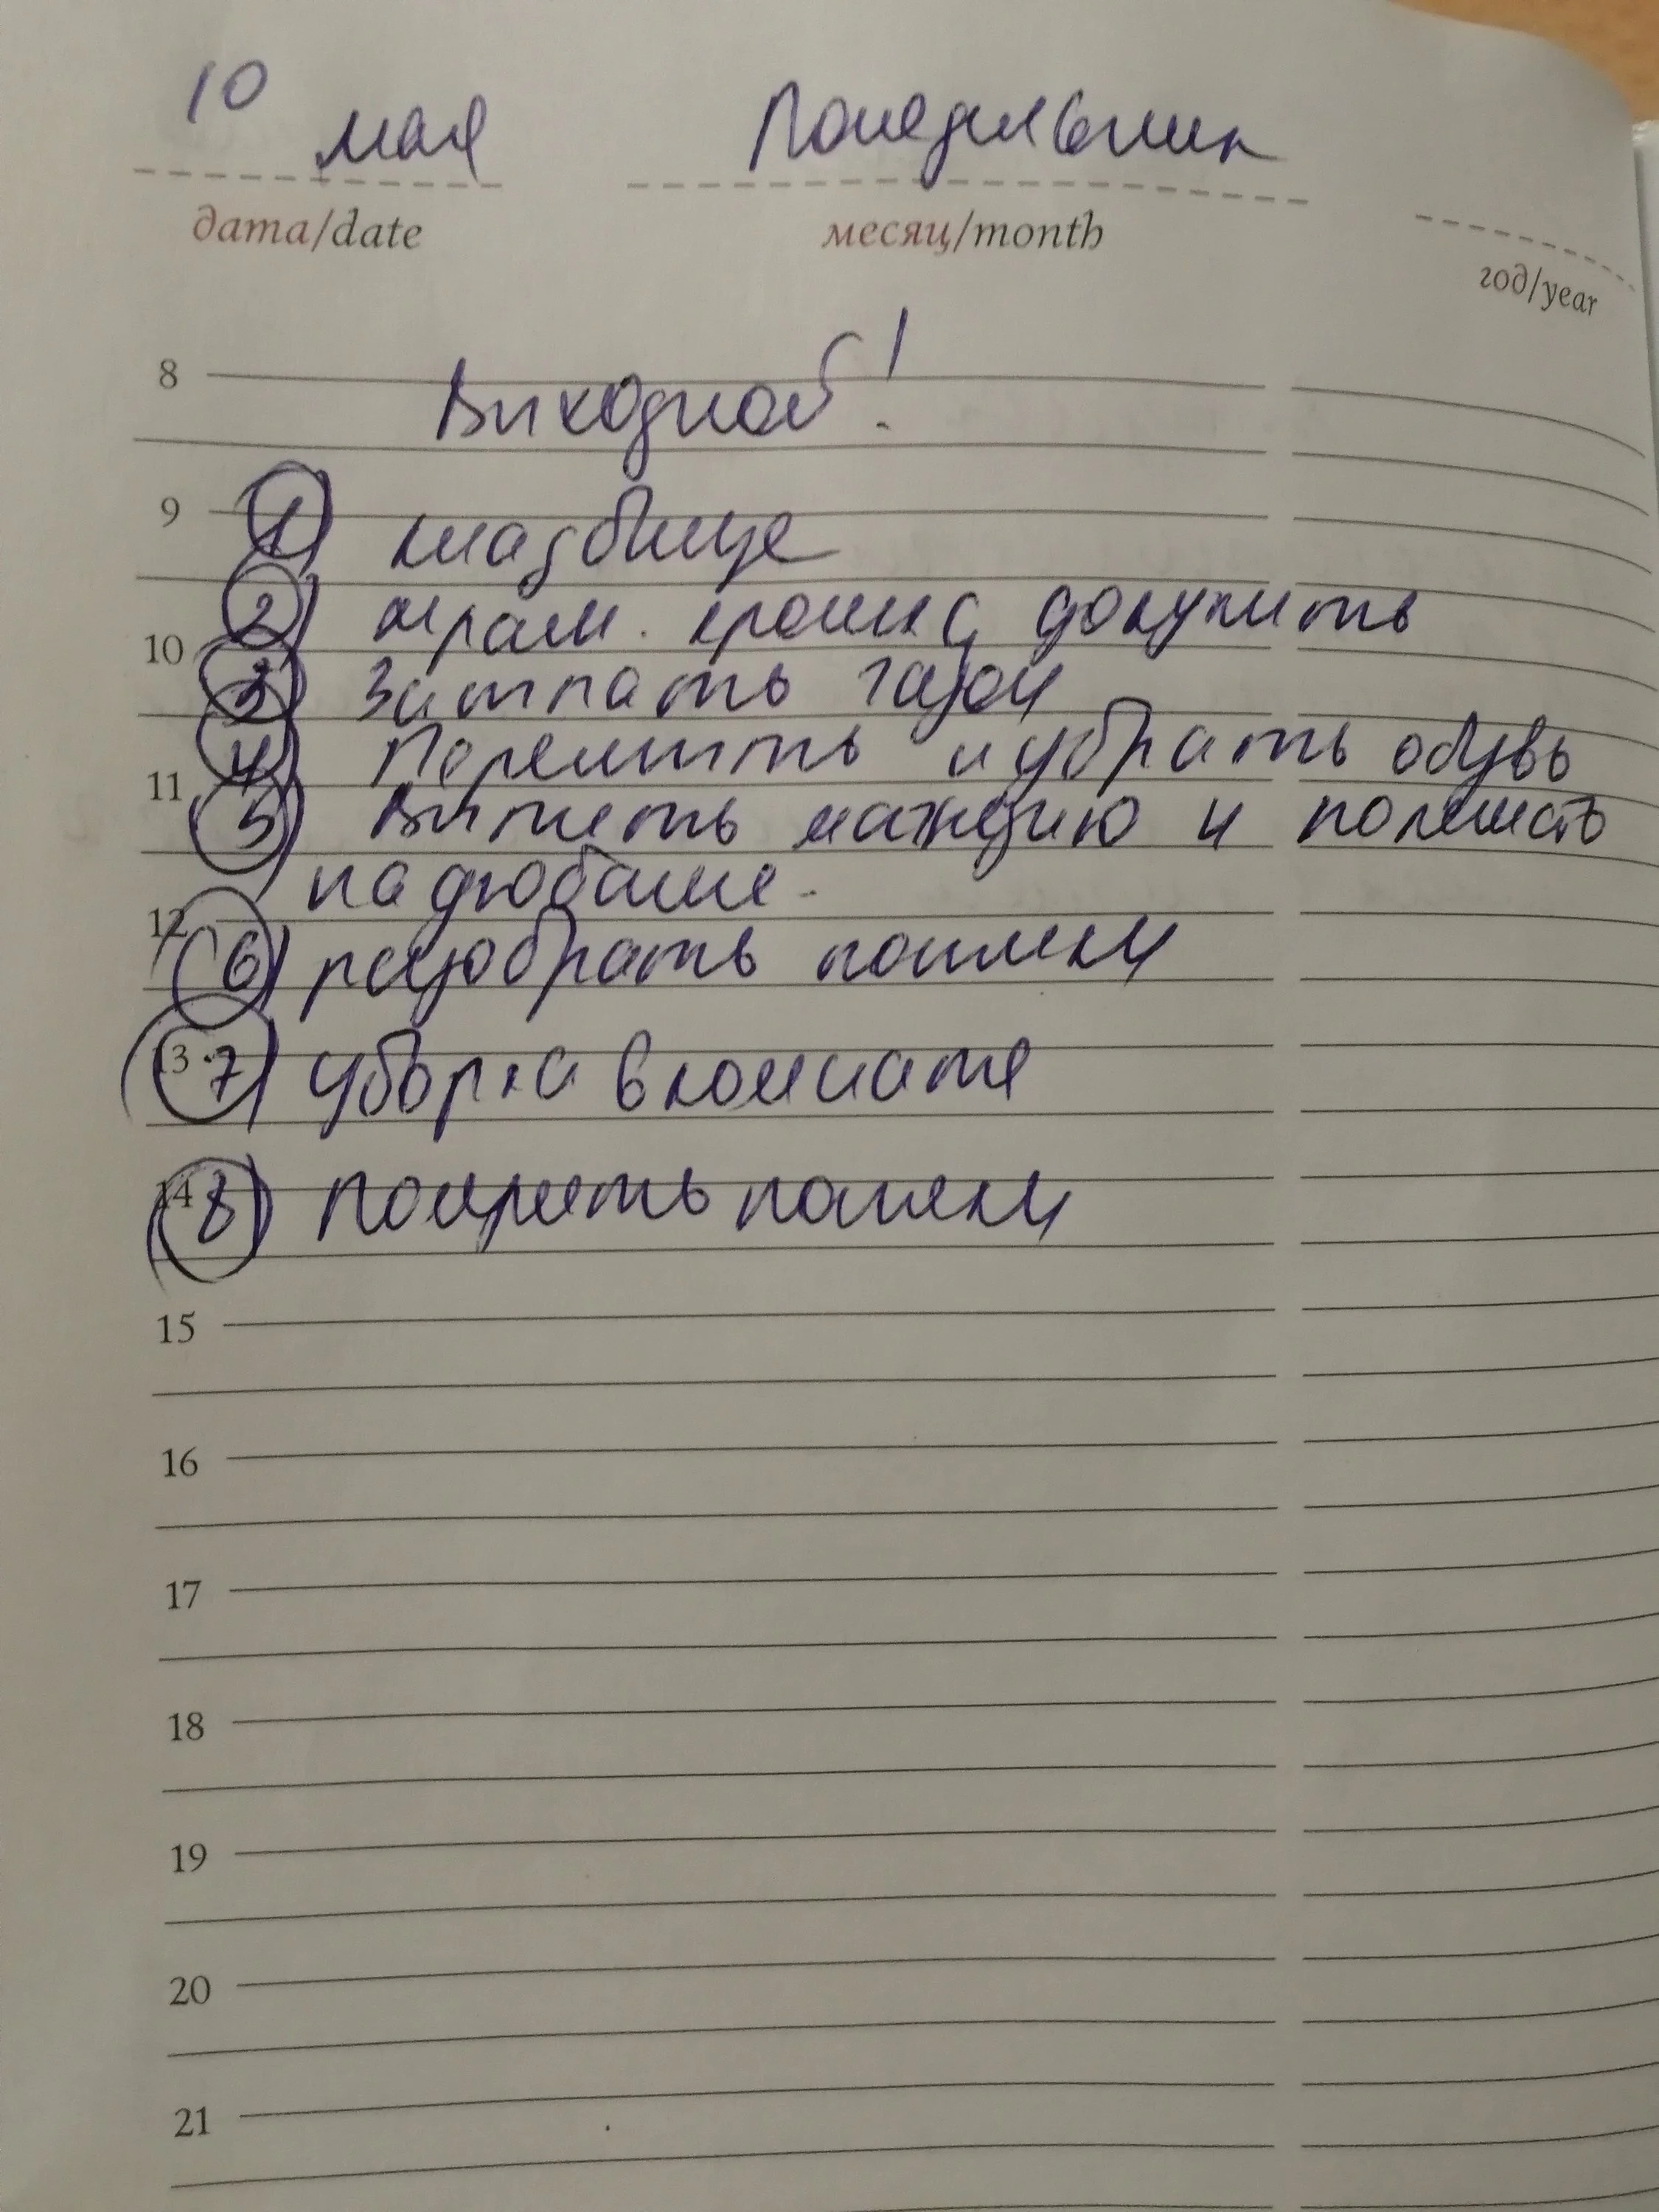 10 мая Понедельник
дата/date месяц/month год/year
8 Выходной!
9 1) кладбище
2) храм. докупить
10 3)
11 4) Перемыть и убрать обувь
5) Выпить магнезию и полежать
на дюбаже.
12 6) разобрать полки
13 7) уборка в комнате
14 8) полки
15
16
17
18
19
20
21